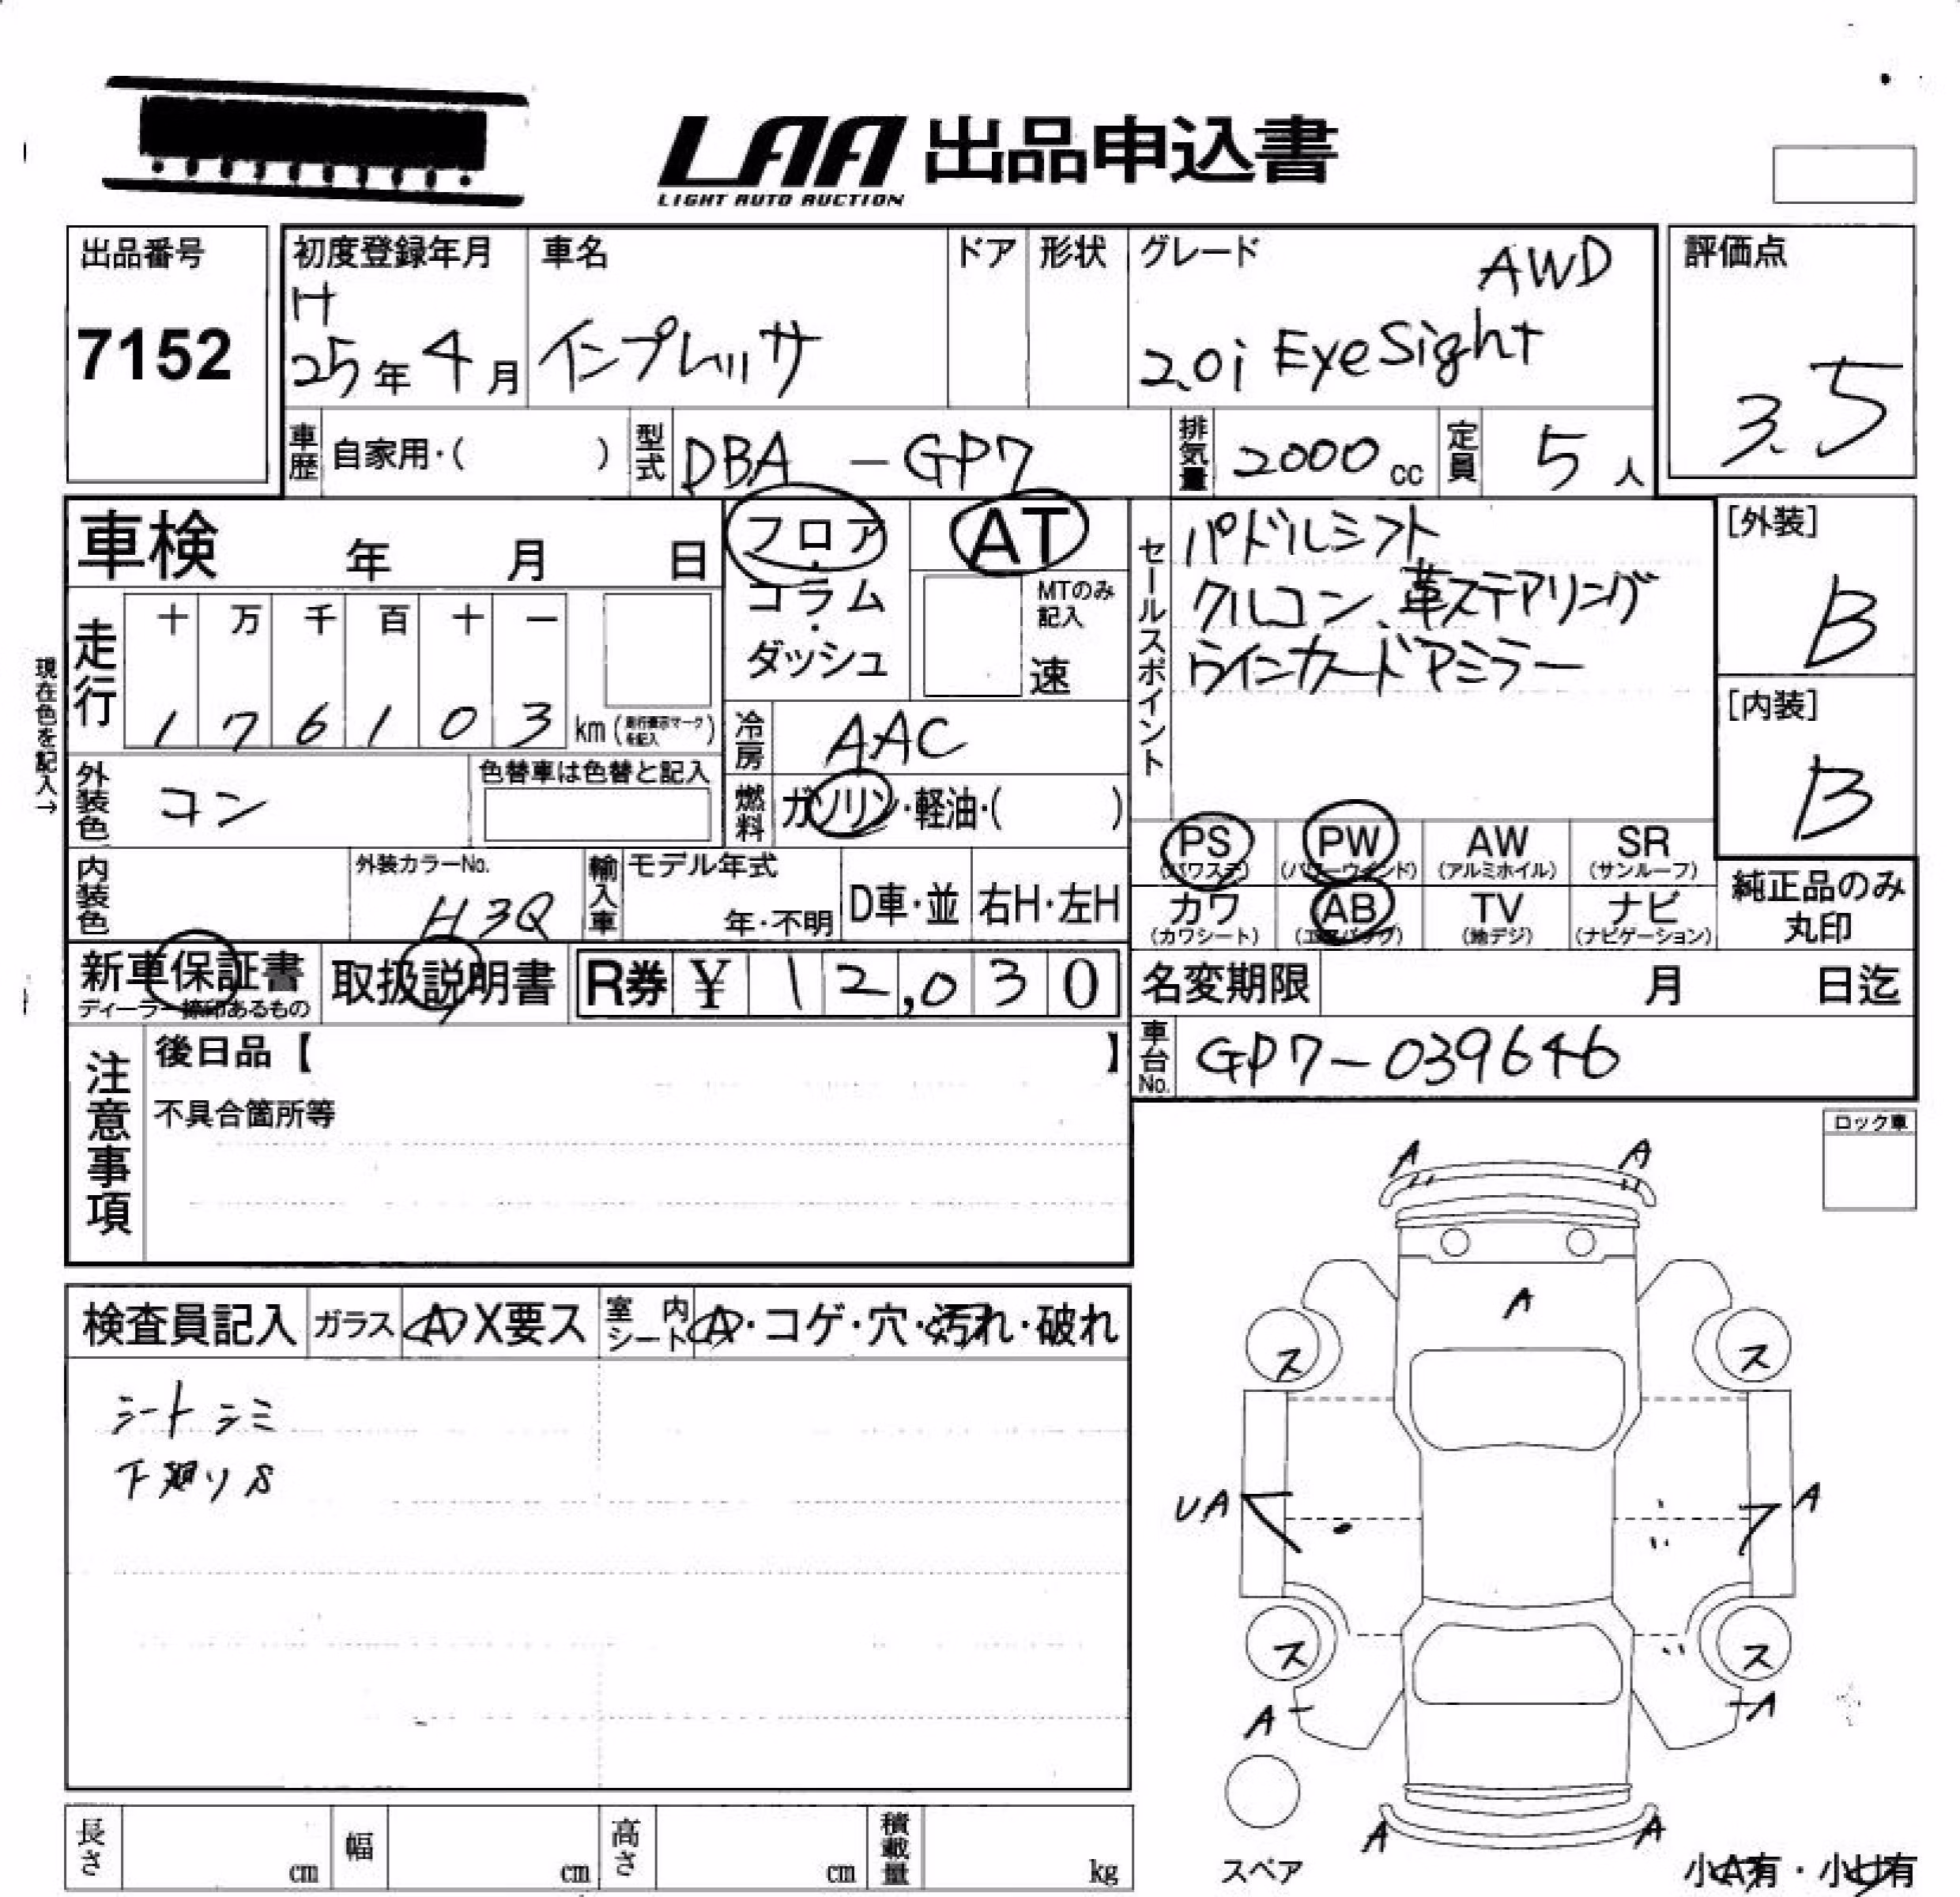 LAA 出品申込書
LIGHT AUTO AUCTION
出品番号
7152
初度登録年月
H
25年 4月
車名
インプレッサ
ドア
形状
グレード
AWD
2.0i EyeSight
評価点
3.5
車歴
自家用・( )
型式
DBA - GP7
排気量
2000 cc
定員
5 人
車検 年 月 日
フロア
・
コラム
・
ダッシュ
AT
MTのみ
記入
速
セールスポイント
パドルシフト
クルコン、革ステアリング
ウインカードアミラー
[外装]
B
[内装]
B
現在色を記入→
走行
十 万 千 百 十 一
1 7 6 1 0 3
km (走行表示マークを記入)
冷房
AAC
外装色
コン
色替車は色替と記入
燃料
ガソリン・軽油・( )
PS
(パワステ)
PW
(パワーウインド)
AW
(アルミホイル)
SR
(サンルーフ)
カワ
(カワシート)
AB
(エアバッグ)
TV
(地デジ)
ナビ
(ナビゲーション)
純正品のみ
丸印
内装色
外装カラーNo.
H3Q
輸入車
モデル年式
年・不明
D車・並
右H・左H
新車保証書
ディーラー捺印あるもの
取扱説明書
R券 ¥ 12,030
名変期限 月 日迄
車台No.
GP7-039646
注意事項
後日品【 】
不具合箇所等
ロック車
検査員記入
ガラス
A X要ス
室内
シート
A・コゲ・穴・汚れ・破れ
シートシミ
下廻りS
A A
A
ス ス
UA
A
ス ス
A
A
A A
スペア
小A有・小U有
長さ cm
幅 cm
高さ cm
積載量 kg